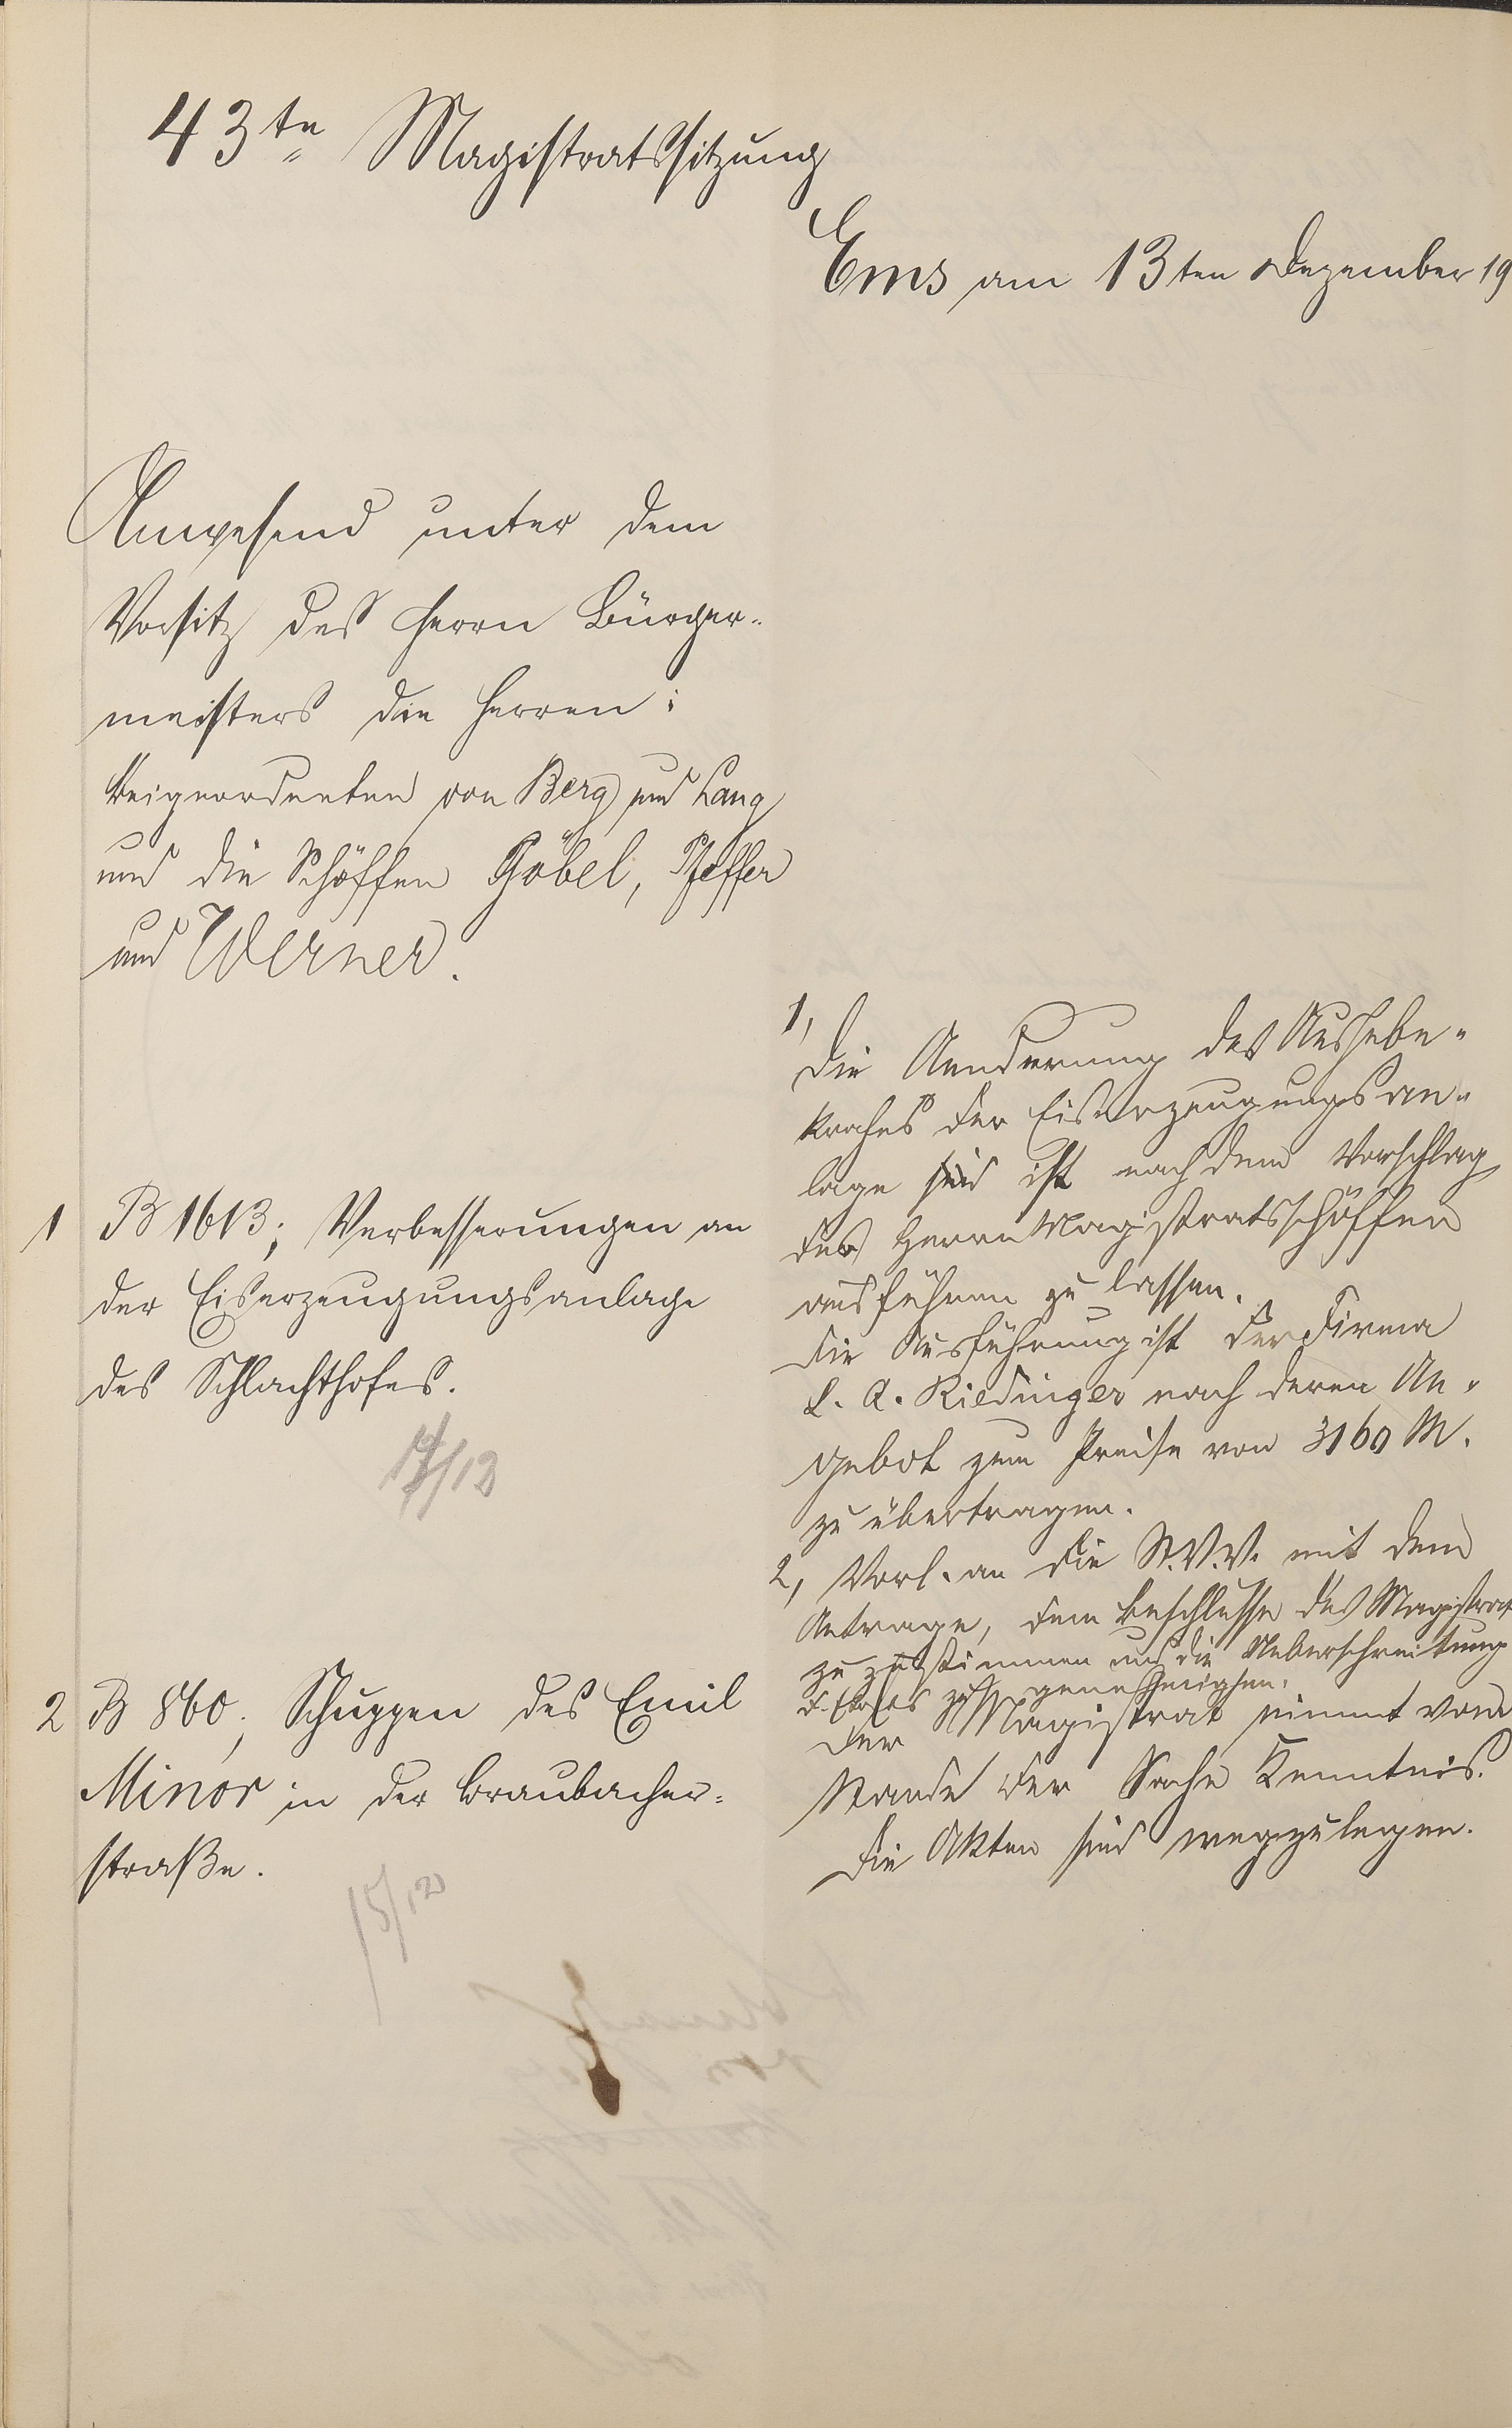 43te Magistratssitzung
Ems am 13ten Dezember 19
Anwesend unter dem
Vorsitz des Herrn Bürger-
meisters die Herren:
Beigeordneten von Berg und Lang
und die Schöffen Göbel, Pfeffer
und Werner.
1 B 1613; Verbesserungen an
der Eiserzeugungsanlage
des Schlachthofes.
1,
Die Aenderung des Aushebe-
krahns der Eiserzeugungsan-
lage sind ist nach dem Vorschlag
des Herrn Magistratsschöffen
ausführen zu lassen.
Die Ausführung ist der Firma
L. A. Riedinger nach deren An-
gebot zum Preise von 3160 M.
zu übertragen.
2, Vorl. an die St.V.V. mit dem
Antrage, dem Beschlusse des Magistrats
zuzustimmen und die Ueberschreitung
d. Etats zu genehmigen.
2 B 860; Schuppen des Emil
Minor in der Braubacher-
straße.
15/12
Der Magistrat nimmt vom
Stande der Sache Kenntnis.
Die Akten sind wegzulegen.